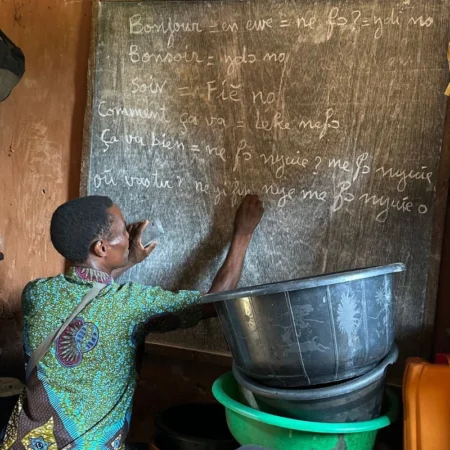 Bonjour = en ewe = ne fɔ? = ydi no
Bonsoir = ydɔ no
Soir = Fiĕ no
Comment ça va = leke nefɔ
Ça va bien = ne fɔ nyuie? me fɔ nyuie
où vas tu? ne nye me fɔ nyuie